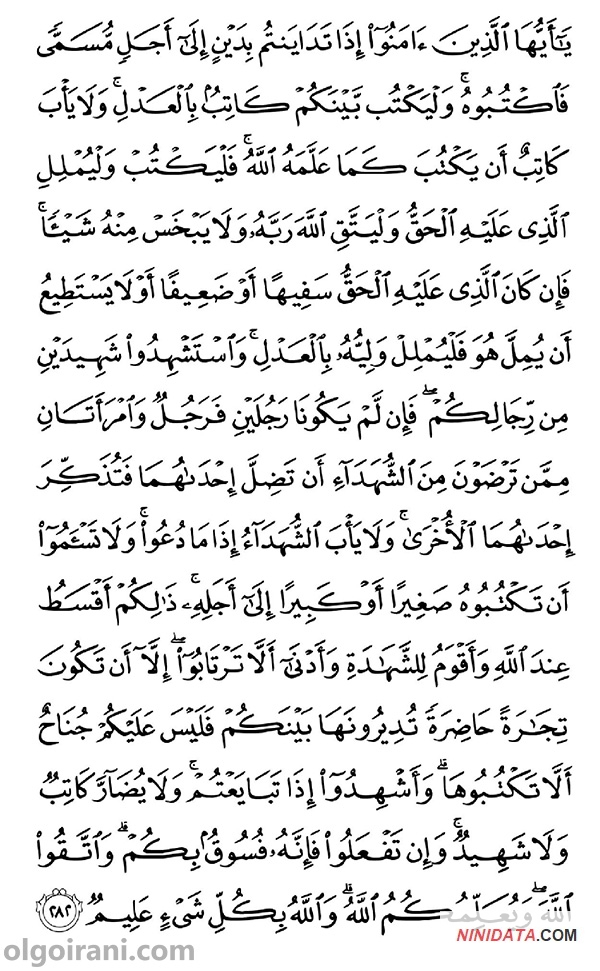 يَـٰٓأَيُّهَا ٱلَّذِينَ ءَامَنُوٓا۟ إِذَا تَدَايَنتُم بِدَيْنٍ إِلَىٰٓ أَجَلٍ مُّسَمًّى
فَٱكْتُبُوهُ ۚ وَلْيَكْتُب بَّيْنَكُمْ كَاتِبٌۢ بِٱلْعَدْلِ ۚ وَلَا يَأْبَ
كَاتِبٌ أَن يَكْتُبَ كَمَا عَلَّمَهُ ٱللَّهُ ۚ فَلْيَكْتُبْ وَلْيُمْلِلِ
ٱلَّذِى عَلَيْهِ ٱلْحَقُّ وَلْيَتَّقِ ٱللَّهَ رَبَّهُۥ وَلَا يَبْخَسْ مِنْهُ شَيْـًٔا ۚ
فَإِن كَانَ ٱلَّذِى عَلَيْهِ ٱلْحَقُّ سَفِيهًا أَوْ ضَعِيفًا أَوْ لَا يَسْتَطِيعُ
أَن يُمِلَّ هُوَ فَلْيُمْلِلْ وَلِيُّهُۥ بِٱلْعَدْلِ ۚ وَٱسْتَشْهِدُوا۟ شَهِيدَيْنِ
مِن رِّجَالِكُمْ ۖ فَإِن لَّمْ يَكُونَا رَجُلَيْنِ فَرَجُلٌ وَٱمْرَأَتَانِ
مِمَّن تَرْضَوْنَ مِنَ ٱلشُّهَدَآءِ أَن تَضِلَّ إِحْدَىٰهُمَا فَتُذَكِّرَ
إِحْدَىٰهُمَا ٱلْأُخْرَىٰ ۚ وَلَا يَأْبَ ٱلشُّهَدَآءُ إِذَا مَا دُعُوا۟ ۚ وَلَا تَسْـَٔمُوٓا۟
أَن تَكْتُبُوهُ صَغِيرًا أَوْ كَبِيرًا إِلَىٰٓ أَجَلِهِۦ ۚ ذَٰلِكُمْ أَقْسَطُ
عِندَ ٱللَّهِ وَأَقْوَمُ لِلشَّهَـٰدَةِ وَأَدْنَىٰٓ أَلَّا تَرْتَابُوٓا۟ ۖ إِلَّآ أَن تَكُونَ
تِجَـٰرَةً حَاضِرَةً تُدِيرُونَهَا بَيْنَكُمْ فَلَيْسَ عَلَيْكُمْ جُنَاحٌ
أَلَّا تَكْتُبُوهَا ۗ وَأَشْهِدُوٓا۟ إِذَا تَبَايَعْتُمْ ۚ وَلَا يُضَآرَّ كَاتِبٌ
وَلَا شَهِيدٌ ۚ وَإِن تَفْعَلُوا۟ فَإِنَّهُۥ فُسُوقٌۢ بِكُمْ ۗ وَٱتَّقُوا۟
ٱللَّهَ ۖ وَيُعَلِّمُكُمُ ٱللَّهُ ۗ وَٱللَّهُ بِكُلِّ شَىْءٍ عَلِيمٌ ٢٨٢
NINIDATA.COM
olgoirani.com